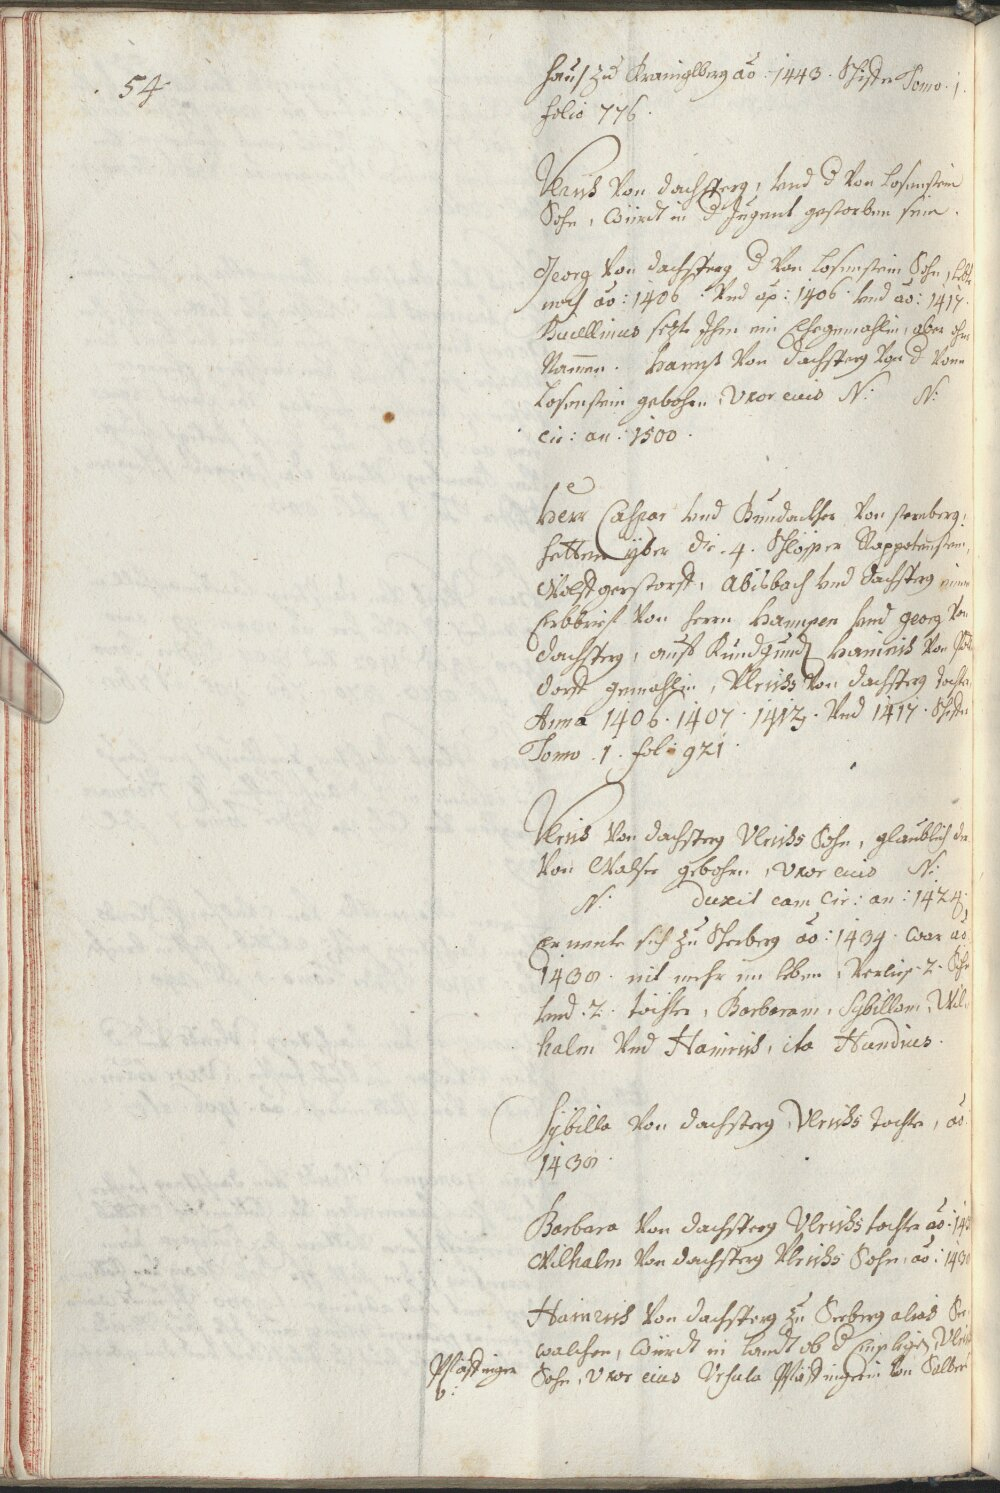 54
hauß zu Kraniglberg ao: 1443. Tomo. 1.
folio 776.
Ulrich Von Dachsperg, Und d Von Losenstein
Sohn, würdt in d Jugent gestorben sein.
Georg Von Dachsperg d Von Losenstein Sohn, lebte
noch ao: 1406. Und ao: 1406. Und ao: 1417.
Bucellinus setzt Ihm ein Ehegemahlin, aber ohne
Nammen. Hannß Von Dachsperg Von d Von
Losenstein gebohrn, Uxor eius N: N:
cir: an: 1500.
Herr Caspar Und Gundacker Von Starnberg,
hetten yber die .4. Schlösser Rappotenstein,
Wolfgerstorff, Abisbach Und Dachsperg einen
Erbbrieff Von herrn Hannsen Und Georg Von
Dachsperg, auch Kundgund Hainrich Von
dorff gemahlin, Ulrichs Von Dachsperg tochter,
Anna 1406. 1407. 1412. Und 1417.
Tomo. 1. fol: 921.
Ulrich Von Dachsperg Ulrichs Sohn, glaublich der
Von Walsee gebohrn, Uxor eius N:
N: duxit eam cir: an: 1424.
Er nente sich zu Seeberg ao: 1434. war ao
1438. nit mehr im leben, Verließ .2. Söhn
Und .2. töchter, Barbaram, Sybillam, Wil
halm Und Hainrich, ita Hundius.
Sybilla Von Dachsperg, Ulrichs tochter, ao:
1438.
Barbara Von Dachsperg Ulrichs tochter ao: 143
Wilhalm Von Dachsperg Ulrichs Sohn, ao: 1438
Hainrich Von Dachsperg zu Seeberg alias See
walchen, würdt in Landt ob d Ulrich
Sohn, Uxor eius Ursula Pfäffingerin Von Salber
Pfäffinger
v: